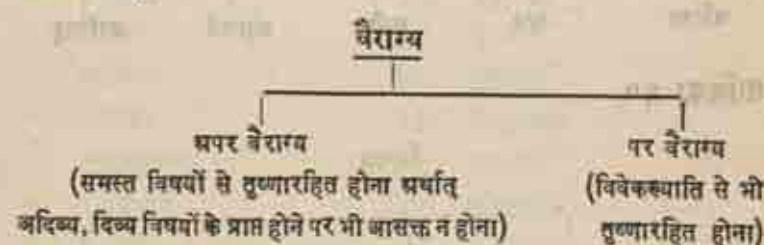 वैराग्य
अपर वैराग्य
(समस्त विषयों से तृष्णारहित होना अर्थात्
अदिव्य, दिव्य विषयों के प्राप्त होने पर भी आसक्त न होना)
पर वैराग्य
(विवेकख्याति से भी
तृष्णारहित होना)